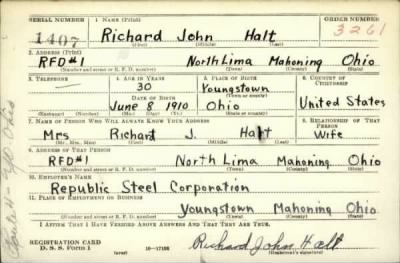 SERIAL NUMBER 1. NAME (Print) ORDER NUMBER
1407 Richard John Halt 3261
(First) (Middle) (Last)
2. ADDRESS (Print)
RFD#1 North Lima Mahoning Ohio
(Number and street or R. F. D. number) (Town) (County) (State)
3. TELEPHONE 4. AGE IN YEARS 5. PLACE OF BIRTH 6. COUNTRY OF CITIZENSHIP
— 30 Youngstown
(Town or county)
DATE OF BIRTH
June 8 1910 Ohio United States
(Mo.) (Day) (Yr.) (State or country)
7. NAME OF PERSON WHO WILL ALWAYS KNOW YOUR ADDRESS 8. RELATIONSHIP OF THAT PERSON
Mrs Richard J. Halt Wife
(Mr., Mrs., Miss) (First) (Middle) (Last)
9. ADDRESS OF THAT PERSON
RFD#1 North Lima Mahoning Ohio
(Number and street or R. F. D. number) (Town) (County) (State)
10. EMPLOYER'S NAME
Republic Steel Corporation
11. PLACE OF EMPLOYMENT OR BUSINESS
Youngstown Mahoning Ohio
(Number and street or R. F. D. number) (Town) (County) (State)
I AFFIRM THAT I HAVE VERIFIED ABOVE ANSWERS AND THAT THEY ARE TRUE.
REGISTRATION CARD
D. S. S. Form 1 (over) 16—17105 Richard John Halt
(Registrant's signature)